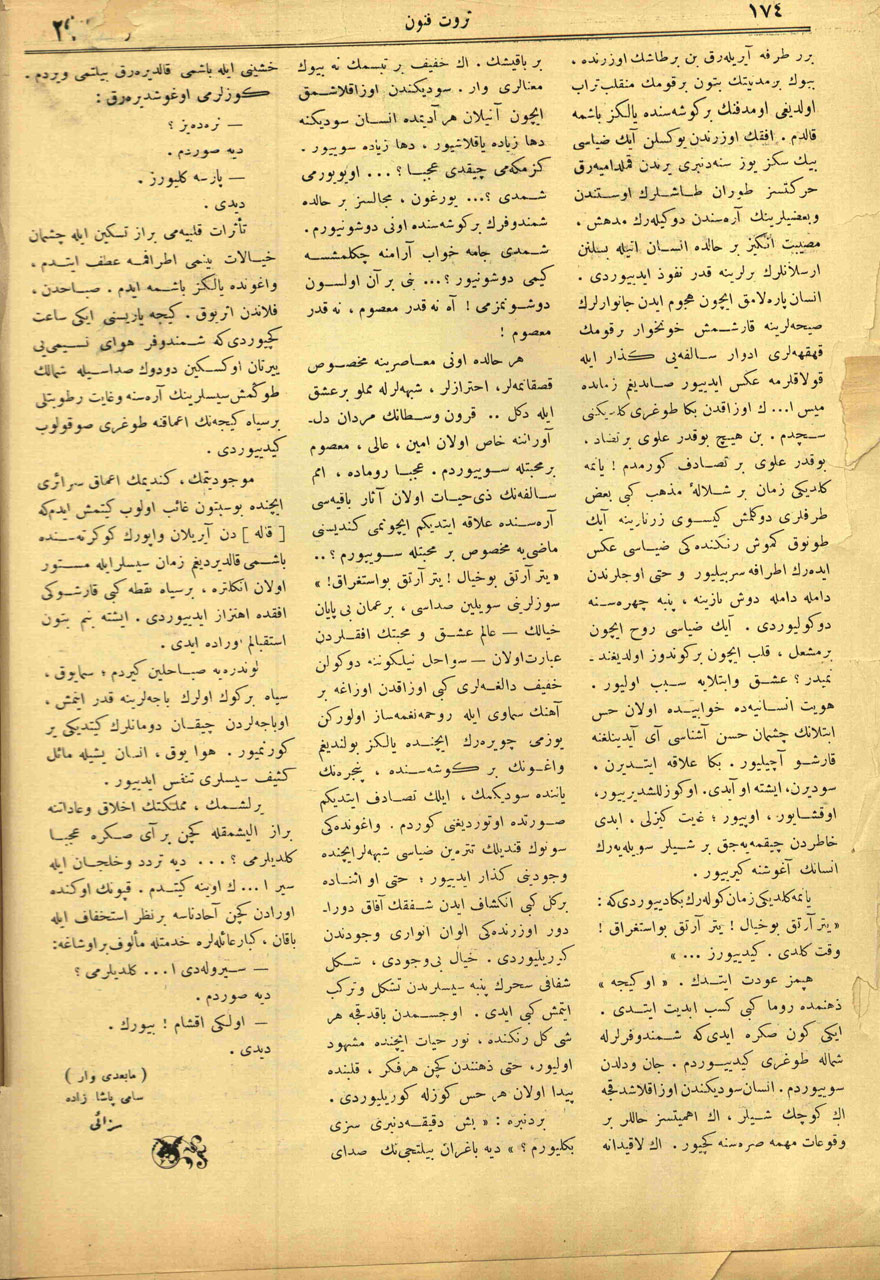 ١٧٤
ثروت فنون
برر طرفه آيريله‌رق بن برطاشك اوزرنده ،
بيوك برمدنيتك بتون برقومك منقلب تراب
اولديغى اومدفنك بركوشه‌سنده يالكز باشمه
قالدم . افقك اوزرندن يوكسلن آيك ضياسى
بيك سكز يوز سنه‌دنبرى يرندن قملداميه‌رق
حركتسز طوران طاشلرك اوستندن
وبعضيلرينك آره‌سندن دوكيله‌رك مدهش ،
مصيبت انكيز بر حالده انسان اتيله بسلنن
ارسلانلرك يرلرينه قدر نفوذ ايدييوردى .
انسان پاره‌لامق ايچون هجوم ايدن جانوارلرك
صيحه‌لرينه قارشمش خونخوار برقومك
قهقهه‌لرى ادوار سالفه‌يى كذار ايله
قولاقلرمه عكس ايدييور صانديغم زمانده
ميس ا... ك اوزاقدن بكا طوغرى كلديكنى
سچدم . بن هيچ بوقدر علوى برتضاد ،
بوقدر علوى بر تصادف كورمدم ! يانمه
كلديكى زمان بر شلالهٔ مذهب كبى بعض
طرفلرى دوكلمش كيسوى زرتارينه آيك
طونوق كموش رنكنده‌كى ضياسى عكس
ايده‌رك اطرافه سربيليور و حتى اوجلرندن
دامله دامله دوش نازينه ، پنبه چهره‌سنه
دوكوليوردى . آيك ضياسى روح ايچون
برمشعل ، قلب ايچون بركوندوز اولديغند ـ
نميدر ؟ عشق وابتلايه سبب اوليور .
هويت انسانيه‌ده خوابيده اولان حس
ابتلانك چشمان حسن آشناسى آى آيدينلغنه
قارشو آچيليور . بكا علاقه ايتديرن .
سوديرن، ايشته او آيدى. اوكوزللشديرييور،
اوقشايور، اوپيور ؛ غايت كيزلى ، ابدى
خاطردن چيقمه‌يه‌جق بر شيلر سويله‌يه‌رك
انسانك آغوشنه كيرييور .
يانمه‌كلديكى زمان كوله‌رك بكاديیوردى‌كه :
« يتر آرتق بوخيال ! يتر آرتق بواستغراق !
وقت كلدى . كيدييورز ... »
هپمز عودت ايتدك . « اوكيجه »
ذهنمده روما كبى كسب ابديت ايتدى .
ايكى كون صكره ايدى‌كه شمندوفرلرله
شماله طوغرى كيدييوردم . جان ودلدن
سوييوردم . انسان سوديكندن اوزاقلاشدقجه
اك كوچك شيلر ، اك اهميتسز حاللر بر
وقوعات مهمه صره‌سنه كچيور . اك لاقيدانه
بر باقيشك . اك خفيف بر تبسمك نه بيوك
معنالرى وار . سوديكندن اوزاقلاشمق
ايچون آتيلان هر آديمده انسان سوديكنه
دها زياده ياقلاشيور ، دها زياده سوييور .
كزمكه‌مى چيقدى عجبا ؟ ... اويويورمى
شمدى ؟... يورغون ، مجالسز بر حالده
شمندوفرك بركوشه‌سنده اونى دوشونيورم .
شمدى جامه خواب آرامنه چكلمشسه
كيمى دوشونيور ؟... بنى بر آن اولسون
دوشونمزمى ! آه نه قدر معصوم ، نه قدر
معصوم !
هر حالده اونى معاصرينه مخصوص
قصقانمه‌لر، احترازلر ، شبهه‌لرله مملو برعشق
ايله دكل .. قرون وسطانك مردان دل‌ـ
آورانه خاص اولان امين ، عالى ، معصوم
برمحبتله سوييوردم . عجبا روماده ، امم
سالفه‌نك ذى‌حيات اولان آثار باقيه‌سى
آره‌سنده علاقه ايتديكم ايچونمى كنديسنى
ماضى‌يه مخصوص بر محبتله سوييورم ؟ ..
« يتر آرتق بوخيال ! يتر آرتق بواستغراق! »
سوزلرينى سويلين صداسى ، برعمان بى پايان
خيالك — عالم عشق و محبتك افقلردن
عبارت‌اولان — سواحل نيلكوننه دوكولن
خفيف دالغه‌لرى كبى اوزاقدن اوزاغه بر
آهنك سماوى ايله روحمه‌نغمه‌ساز اولوركن
يوزمى چويره‌رك ايچنده يالكز بولنديغم
واغونك بر كوشه‌سنده ، پنجره‌نك
ياننده سوديكمك ، ايلك تصادف ايتديكم
صورتده اوتورديغنى كوردم . واغونده‌كى
سونوك قنديلك تتره‌ين ضياسى شبهه‌لرايچنده
وجودينى كذار ايدييور ؛ حتى او اثناده
بركل كبى انكشاف ايدن شفقك آفاق دورا‌ـ
دور اوزرنده‌كى الوان انوارى وجودندن
كوريليوردى . خيال بى‌وجودى ، شكل
شفافى سحرك پنبه سيسلرندن تشكل وتركب
ايتمش كبى ايدى . اوجسمدن باقدقجه هر
شى كل رنكنده ، نور حيات ايچنده مشهود
اوليور، حتى ذهنندن كچن هرفكر ، قلبنده
پيدا اولان هر حس كوزله كوريليوردى .
بردنبره : « بش دقيقه‌دنبرى سزى
بكليورم ؟ » ديه باغران بيلتجى‌نك صداى
خشينى ايله باشمى قالديره‌رق بيلتمى ويردم .
كوزلرمى اوغوشديره‌رق :
— نره‌ده‌يز ؟
ديه صوردم .
— پارسه كليورز .
ديدى .
تأثرات قلبيه‌مى براز تسكين ايله چشمان
خيالات بينمى اطرافمه عطف ايتدم .
واغونده يالكز باشمه ايدم . صباحدن ،
فلاندن اثريوق . كيجه ياريسنى ايكى ساعت
كچيوردى‌كه شمندوفر هواى نسيمى‌يى
ييرتان اوكسكين دودوك صداسيله شمالك
طوكمش سيسلرينك آره‌سنه وغايت رطوبتلى
برسياه كيجه‌نك اعماقنه طوغرى صوقولوب
كيدييوردى .
موجوديتمك، كنديمك اعماق سرائرى
ايچنده بوسبتون غائب اولوب كيتمش ايدم‌كه
[ قاله ] دن آيريلان واپورك كوكرته‌سنده
باشمى قالديرديغم زمان سيسلرايله مستور
اولان انكلتره ، برسياه نقطه كبى قارشوكى
افقده اهتزاز ايدييوردى . ايشته بنم بتون
استقبالم اوراده ايدى .
لوندره‌يه صباحلين كيردم ؛ سمايوق ،
سياه بركوك اولرك باجه‌لرينه قدر اينمش .
اوباجه‌لردن چيقان دومانلرك كيتديكى ير
كورنميور . هوا يوق ، انسان يشيله مائل
كثيف سيسلرى تنفس ايدييور .
يرلشمك ، مملكتك اخلاق وعاداتنه
براز اليشمقله كچن بر آى صكره عجبا
كلديلرمى ؟ ... ديه تردد وخلجان ايله
سير ا... ك اوينه كيتدم . قپونك اوكنده
اورادن كچن آحادناسه برنظر استخفاف ايله
باقان ، كبارعائله‌لره خدمتله مألوف براوشاغه:
— سيروله‌دى ا... كلديلرمى ؟
ديه صوردم .
— اولكى اقشام ! بيورك .
ديدى .
( مابعدى وار )
سامى پاشا زاده
سزائى